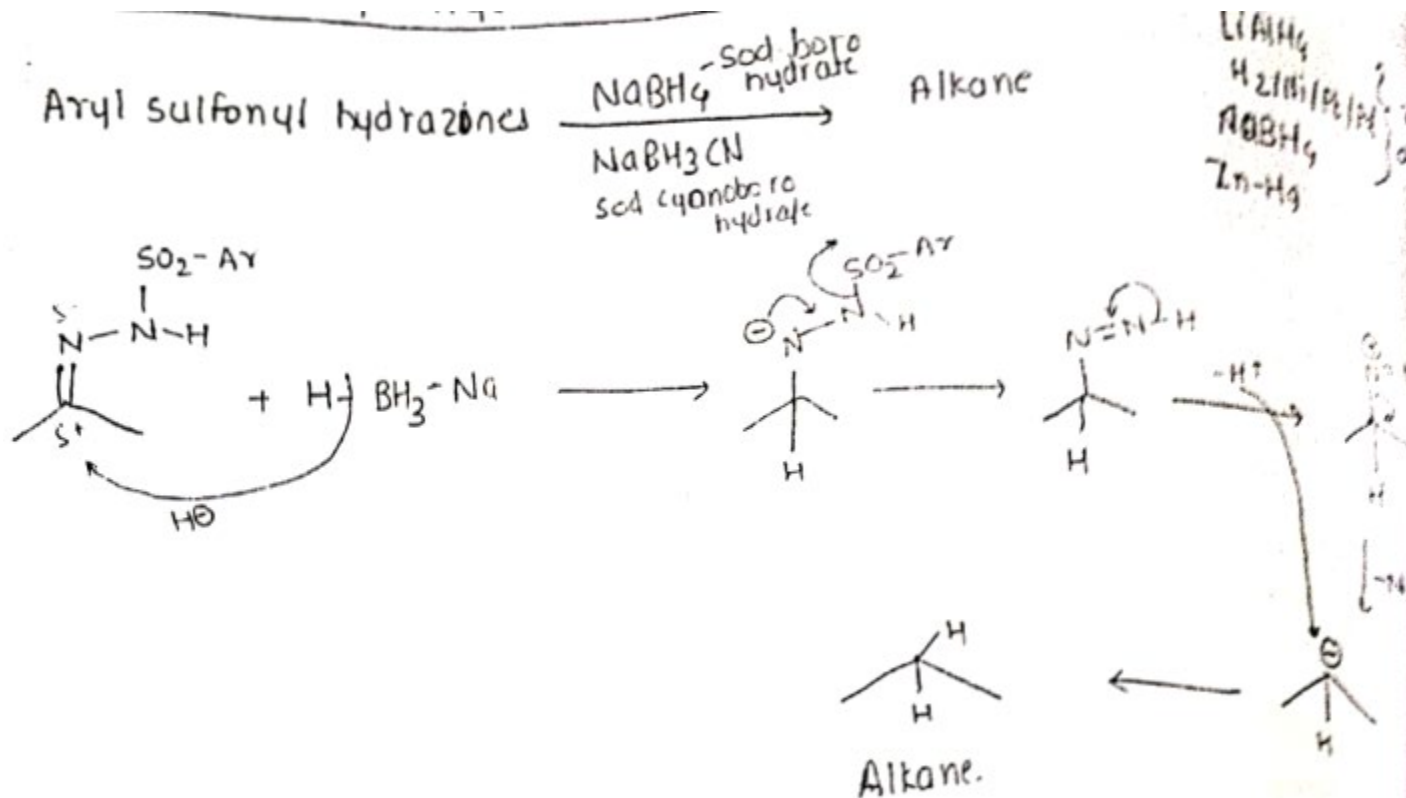 Aryl sulfonyl hydrazones
NaBH4 - sod boro
hydrate
NaBH3CN
sod cyanoboro
hydrate
Alkane
LiAlH4
H2/Ni/Pt/Pd
Zn-Hg
SO2-Ar
N-N-H
+ H- BH3-Na
S+
H⊖
SO2-Ar
⊖ N-N H
H
N=N-H
H
-H+
⊕
H
H
H
Alkane.